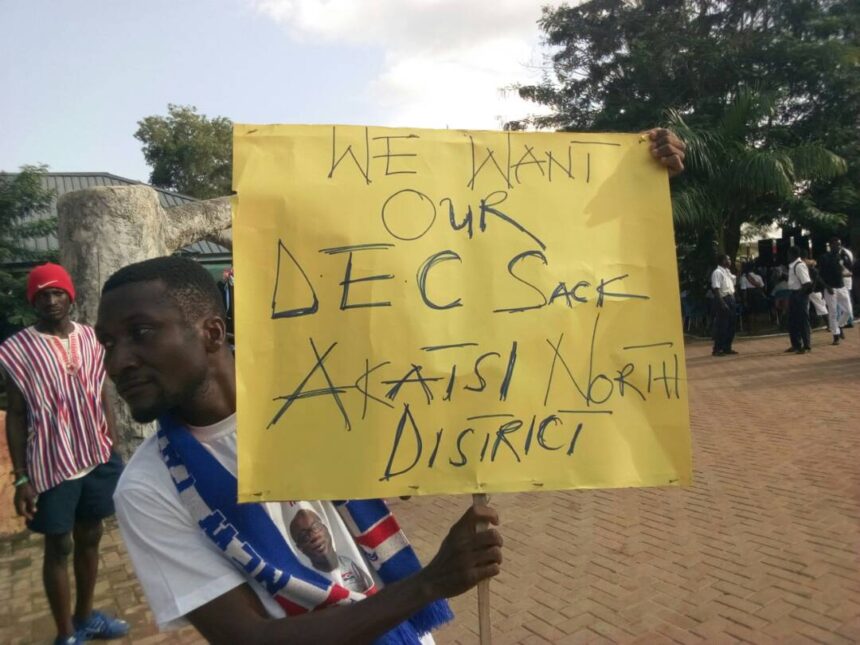 WE WANT
OUR
D.E.C SACK
AKATSI NORTH
DISTRICT